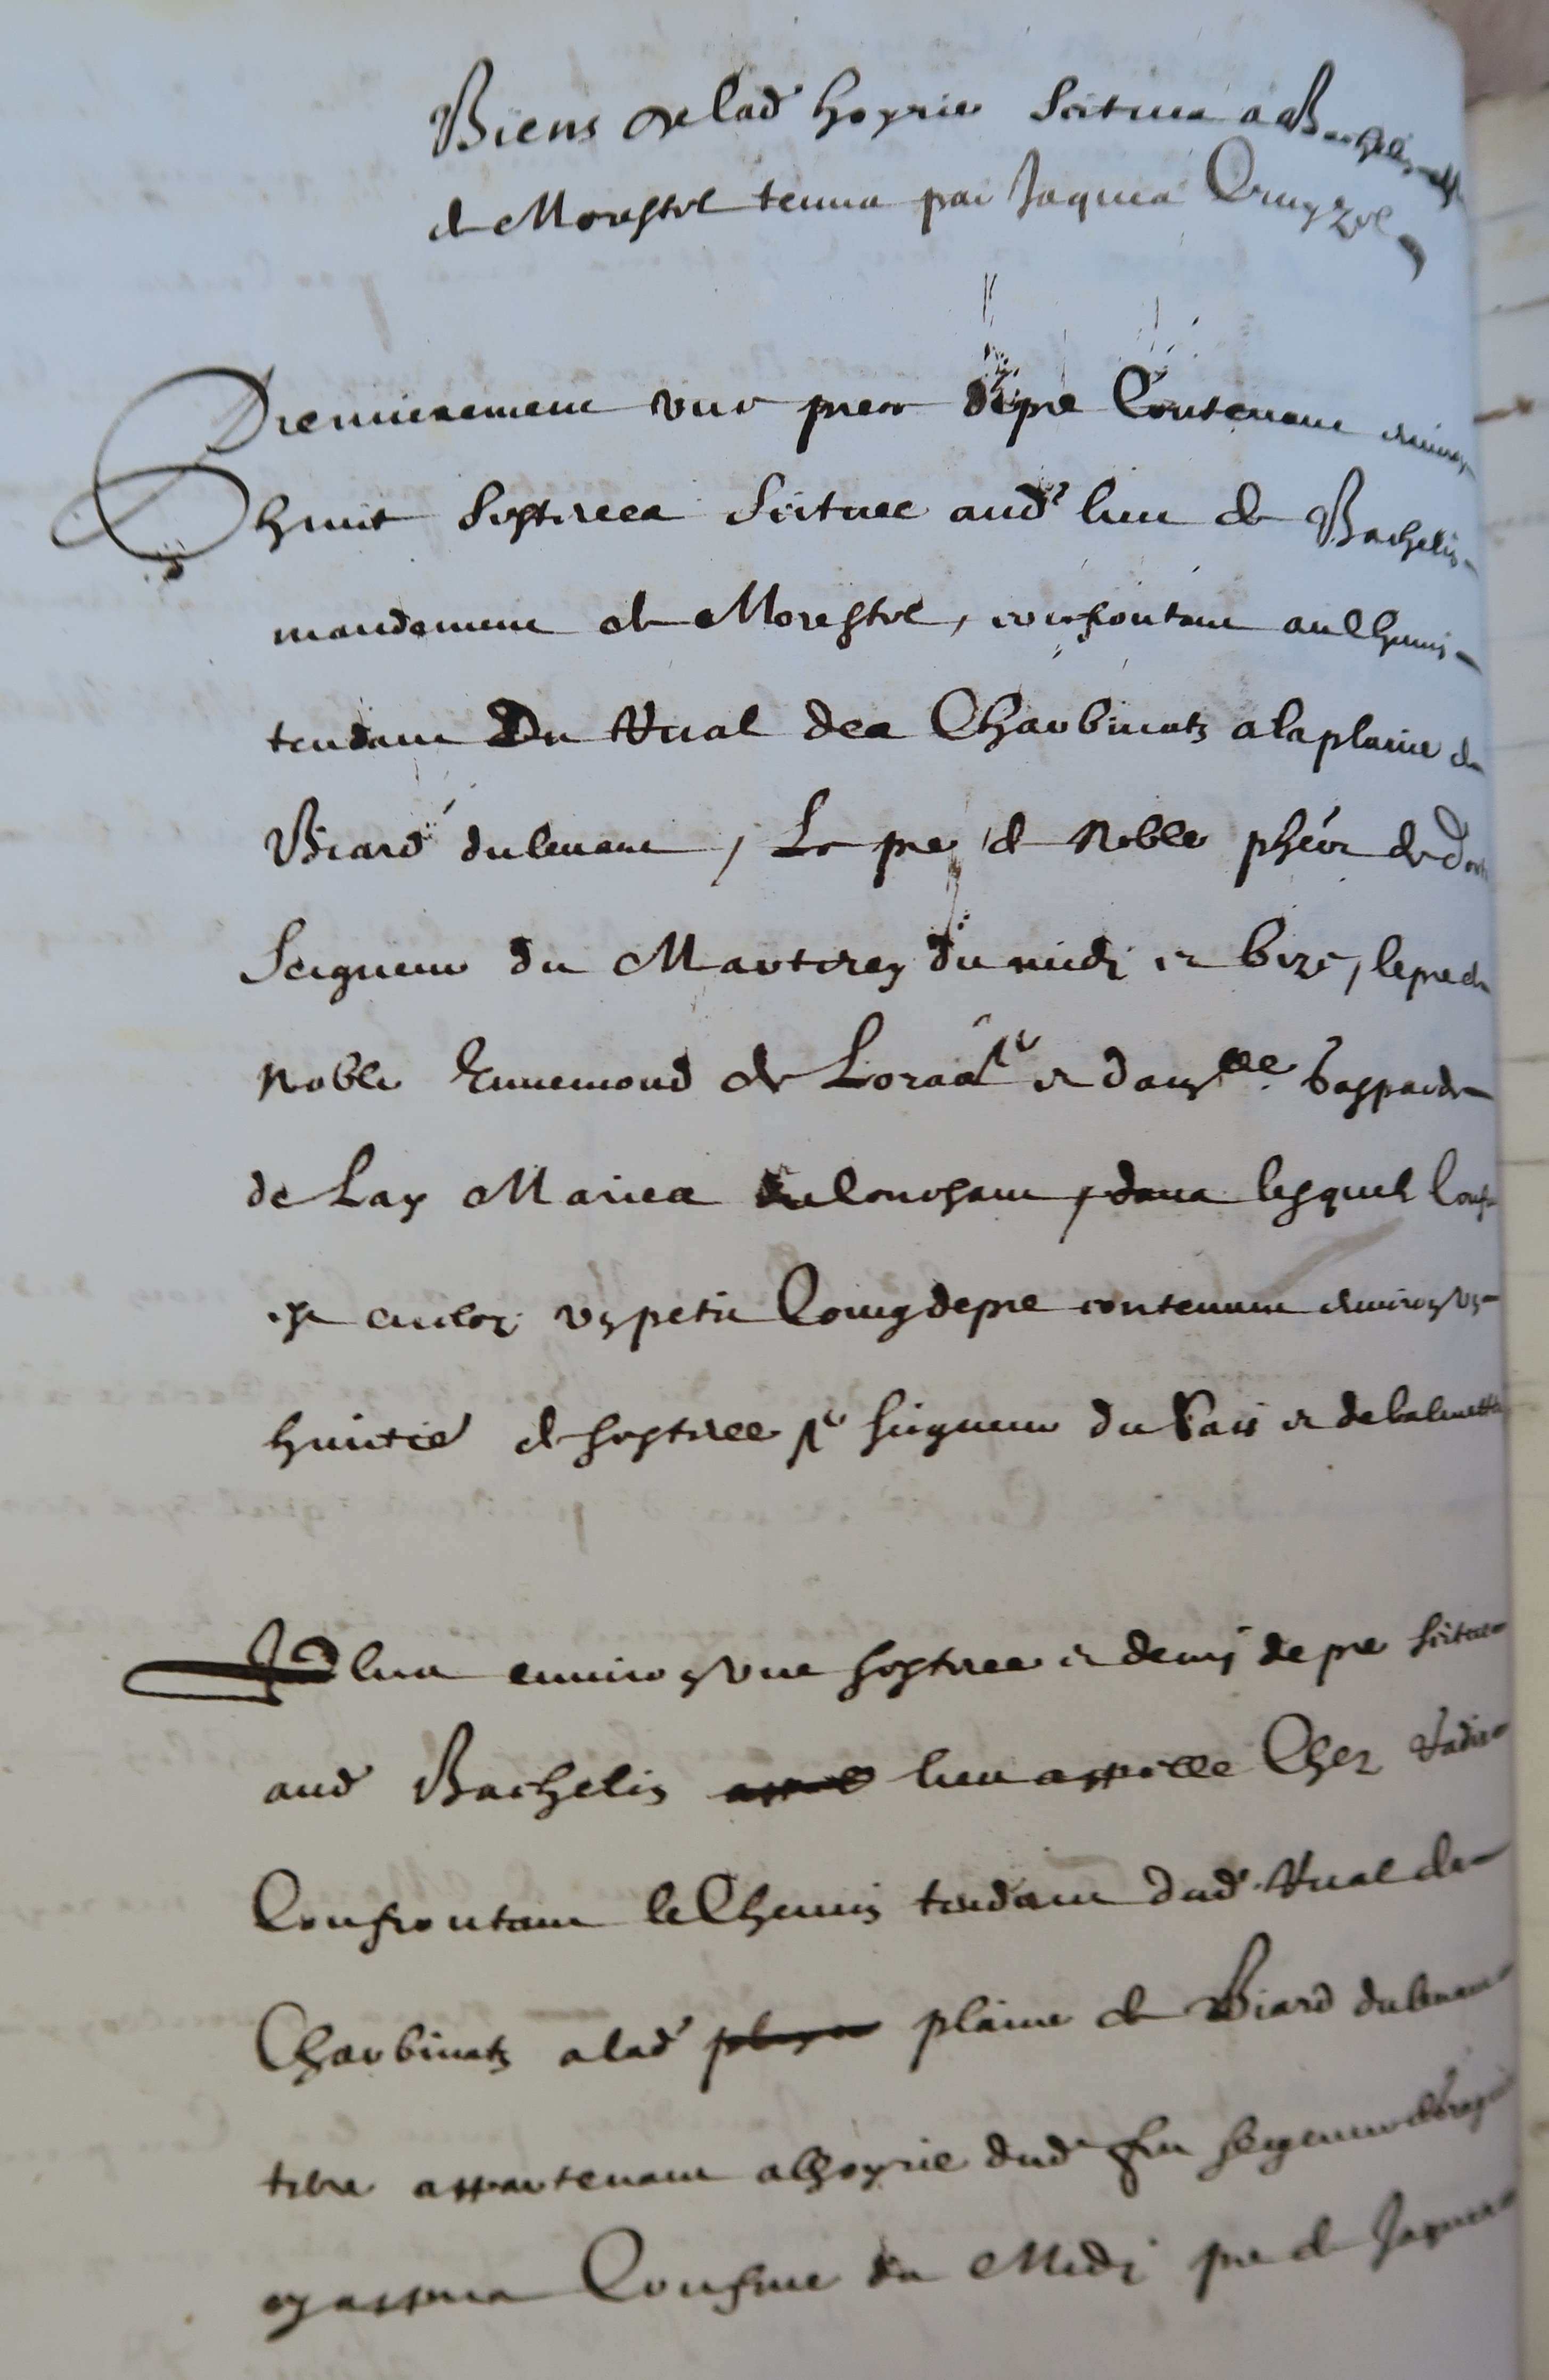 Biens de lad' hoyrie scitues a Bachelin
de Morestel tenus par Jaques
Premierement une piece de pre Contenant environ
huict sestirees scituee aud' lieu de Bachelin
mandement de Morestel, confrontant au Chemin
tendant du Rual des Charbinatz a la plaine de
Biard du levant, Le pre de Noble de
Seigneur du Marterey du midi et bize, le pre de
Noble Ennemond de Loras et dam.lle Gasparde
de Lay Maries du couchant, dans lesquels confins
est enclos un petit Coing de pre contenant environ un
huictie de sestiree sr seigneur du et de
Plus environ une sestiree et demy de pre scitue
aud' Bachelin lieu appelle Chez
Confrontant le Chemin tendant dud' Rual de
Charbinatz a lad' plaine de Biard du levant
terre appartenant a lhoyrie dud' feu seigneur
cy apres Confine du Midi pre de Jaques